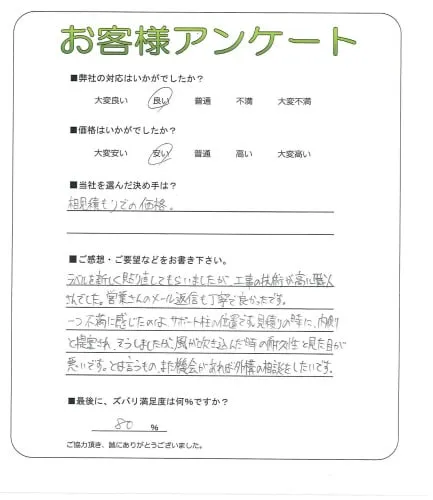 お客様アンケート
■弊社の対応はいかがでしたか?
大変良い 良い 普通 不満 大変不満
■価格はいかがでしたか?
大変安い 安い 普通 高い 大変高い
■当社を選んだ決め手は?
相見積もりでの価格。
■ご感想・ご要望などをお書き下さい。
ラバルを新しく貼り直してもらいましたが、工事の技術が高い職人
さんでした。営業さんのメール返信も丁寧で良かったです。
一つ不満に感じたのは、サポート柱の位置です。見積りの時に、内側
と提案され、そうしましたが、風が吹き込んだ時の耐久性と見た目が
悪いです。とは言うもの、また機会があれば外構の相談をしたいです。
■最後に、ズバリ満足度は何%ですか?
80 %
ご協力頂き、誠にありがとうございました。